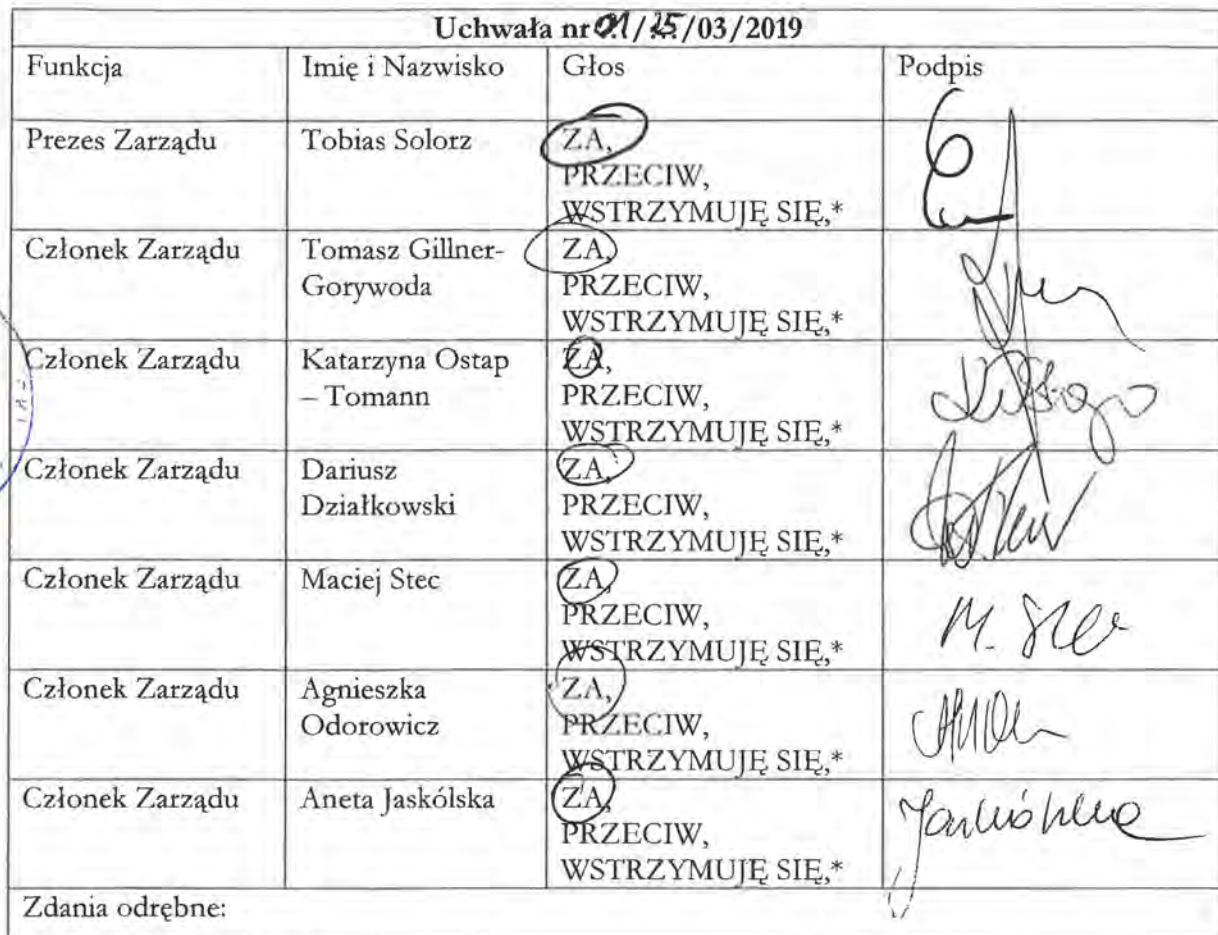 Uchwała nr 01/25/03/2019
Funkcja Imię i Nazwisko Głos Podpis
Prezes Zarządu Tobias Solorz ZA,
PRZECIW,
WSTRZYMUJĘ SIĘ,*
Członek Zarządu Tomasz Gillner- ZA,
Gorywoda PRZECIW,
WSTRZYMUJĘ SIĘ,*
Członek Zarządu Katarzyna Ostap ZA,
– Tomann PRZECIW,
WSTRZYMUJĘ SIĘ,*
Członek Zarządu Dariusz ZA,
Działkowski PRZECIW,
WSTRZYMUJĘ SIĘ,*
Członek Zarządu Maciej Stec ZA,
PRZECIW, M. Stec
WSTRZYMUJĘ SIĘ,*
Członek Zarządu Agnieszka ZA,
Odorowicz PRZECIW,
WSTRZYMUJĘ SIĘ,*
Członek Zarządu Aneta Jaskólska ZA,
PRZECIW,
WSTRZYMUJĘ SIĘ,*
Zdania odrębne: